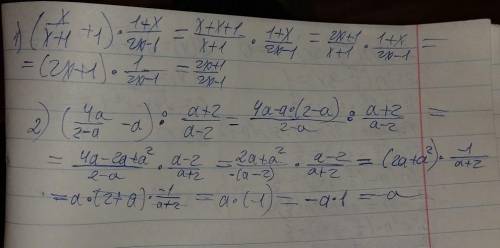 1) (x/(x+1) + 1) · (1+x)/(2x-1) = (x+x+1)/(x+1) · (1+x)/(2x-1) = (2x+1)/(x+1) · (1+x)/(2x-1) =
= (2x+1) · 1/(2x-1) = (2x+1)/(2x-1)
2) (4a/(2-a) - a) : (a+2)/(a-2) = (4a-a·(2-a))/(2-a) : (a+2)/(a-2) =
= (4a-2a+a²)/(2-a) · (a-2)/(a+2) = (2a+a²)/(-(a-2)) · (a-2)/(a+2) = (2a+a²) · (-1)/(a+2)
= a·(2+a) · (-1)/(a+2) = a·(-1) = -a·1 = -a